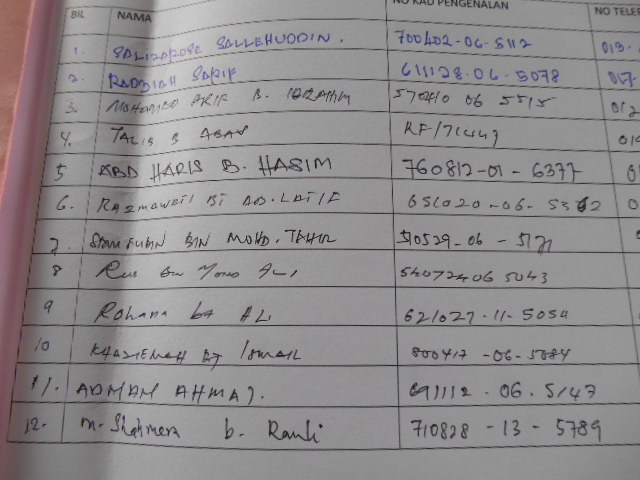 BIL NAMA NO KAD PENGENALAN NO TELEF
1. SALIZAROSE SALLEHUDDIN. 700402-06-5112 013-
2. RADZIAH SARIF 611128-06-5078 017-
3. MOHAMED ARIF B. IBRAHIM 570410 06 5515 012
4. TALIB B ABAS RF/71449 01
5 ABD HARIS B. HASIM 760812-01-6377 0
6. RAZMAWATI BT ABD. LATIF 651020-06-5362 0
7. BIN MOHD. TAHIR 510529-06-5171
8 540724 06 5043
9 Rohana bt ALI 621027-11-5054
10 BT Ismail 800417-06-5084
11. ADNAN AHMAD. 691112.06.5147
12. M. b. Ramli 710828-13-5789